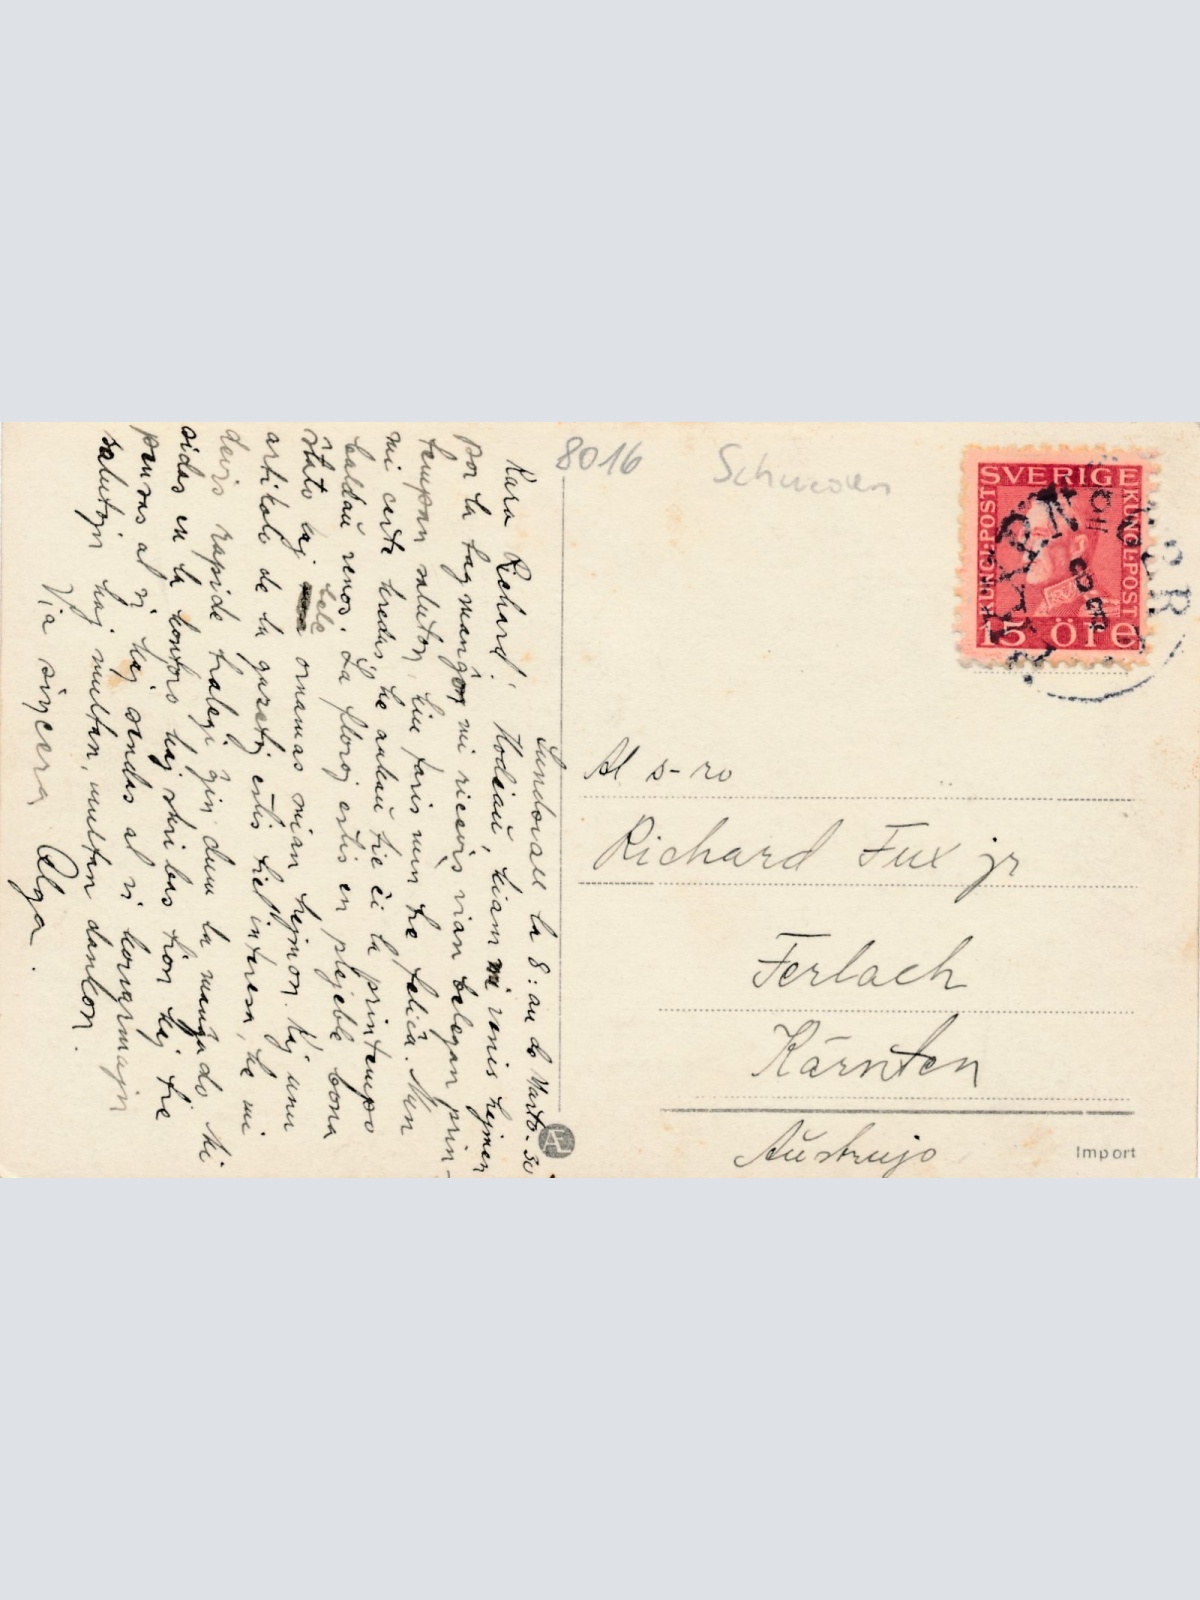 8016
Schweden
SVERIGE
KUNGL·POST
KUNGL·POST
15 ÖRE
Al s-ro
Richard Fux jr
Ferlach
Kärnten
Aŭstrujo
Import
Æ
la 8:an de Marto - 30
Kara Richard! Hodiaŭ, kiam mi venis hejmen
por la tagmanĝo, mi ricevis vian belegan prin-
tempan saluton, kiu faris min tre feliĉa. Nun
mi certe kredas, ke ankaŭ tie ĉi la printempo
baldaŭ venos. La floroj estis en plejeble bona
stato kaj bele ornamas mian hejmon. Kaj unu
artikolo de la gazetoj estis tiel interesa, ke mi
devis rapide tralegi ĝin dum la manĝado. Mi
sidas en la kontoro kaj skribas tion kaj tre
pensas al vi kaj sendas al vi korvarmajn
salutojn kaj multan, multan dankon.
Via sincera Olga.